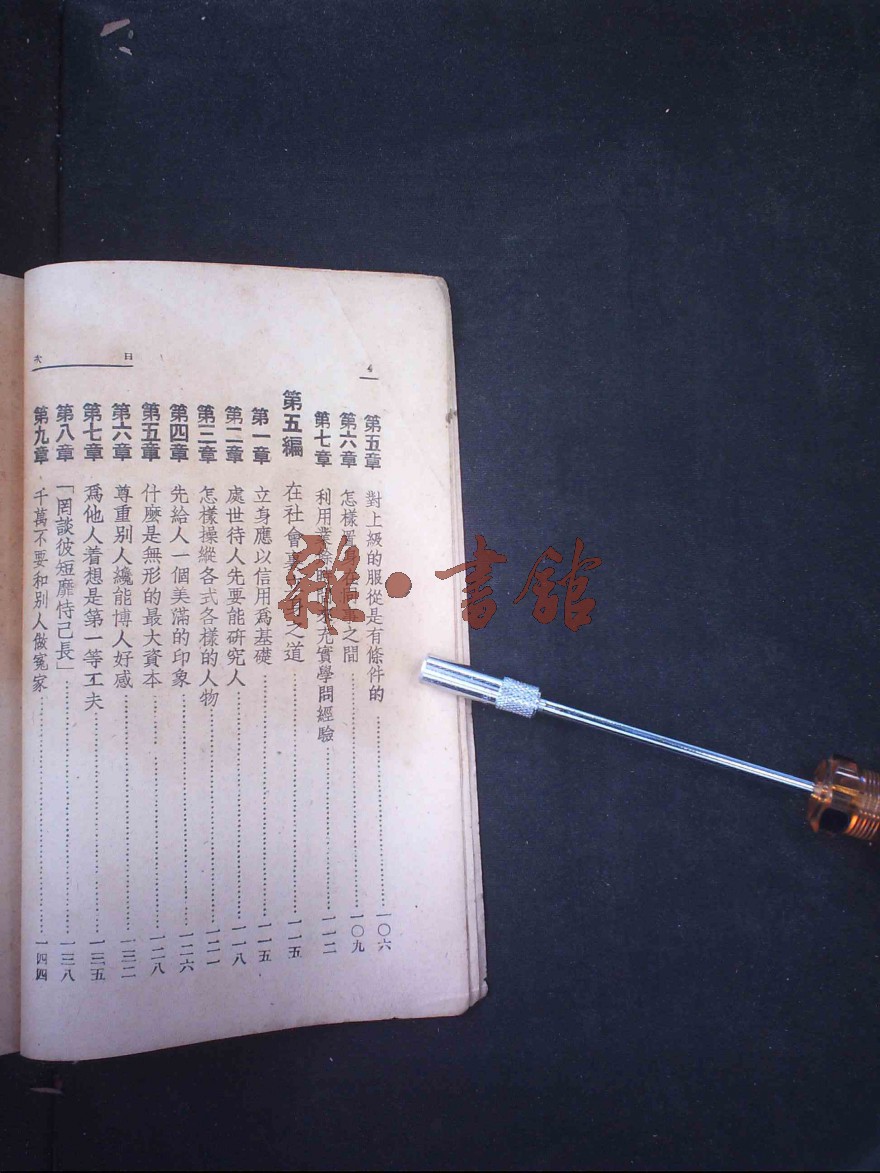 目 次
4
第五章 對上級的服從是有條件的 一〇六
第六章 怎樣 之間 一〇九
第七章 利用業餘時間 充實學問經驗 一一二
第五編 在社會裏 之道 一一五
第一章 立身應以信用爲基礎 一一五
第二章 處世待人先要能研究人 一一八
第三章 怎樣操縱各式各樣的人物 一二一
第四章 先給人一個美滿的印象 一二六
第五章 什麽是無形的最大資本 一二八
第六章 尊重别人纔能博人好感 一三二
第七章 爲他人着想是第一等工夫 一三五
第八章 「罔談彼短靡恃己長」 一三八
第九章 千萬不要和别人做冤家 一四四
雜·書館